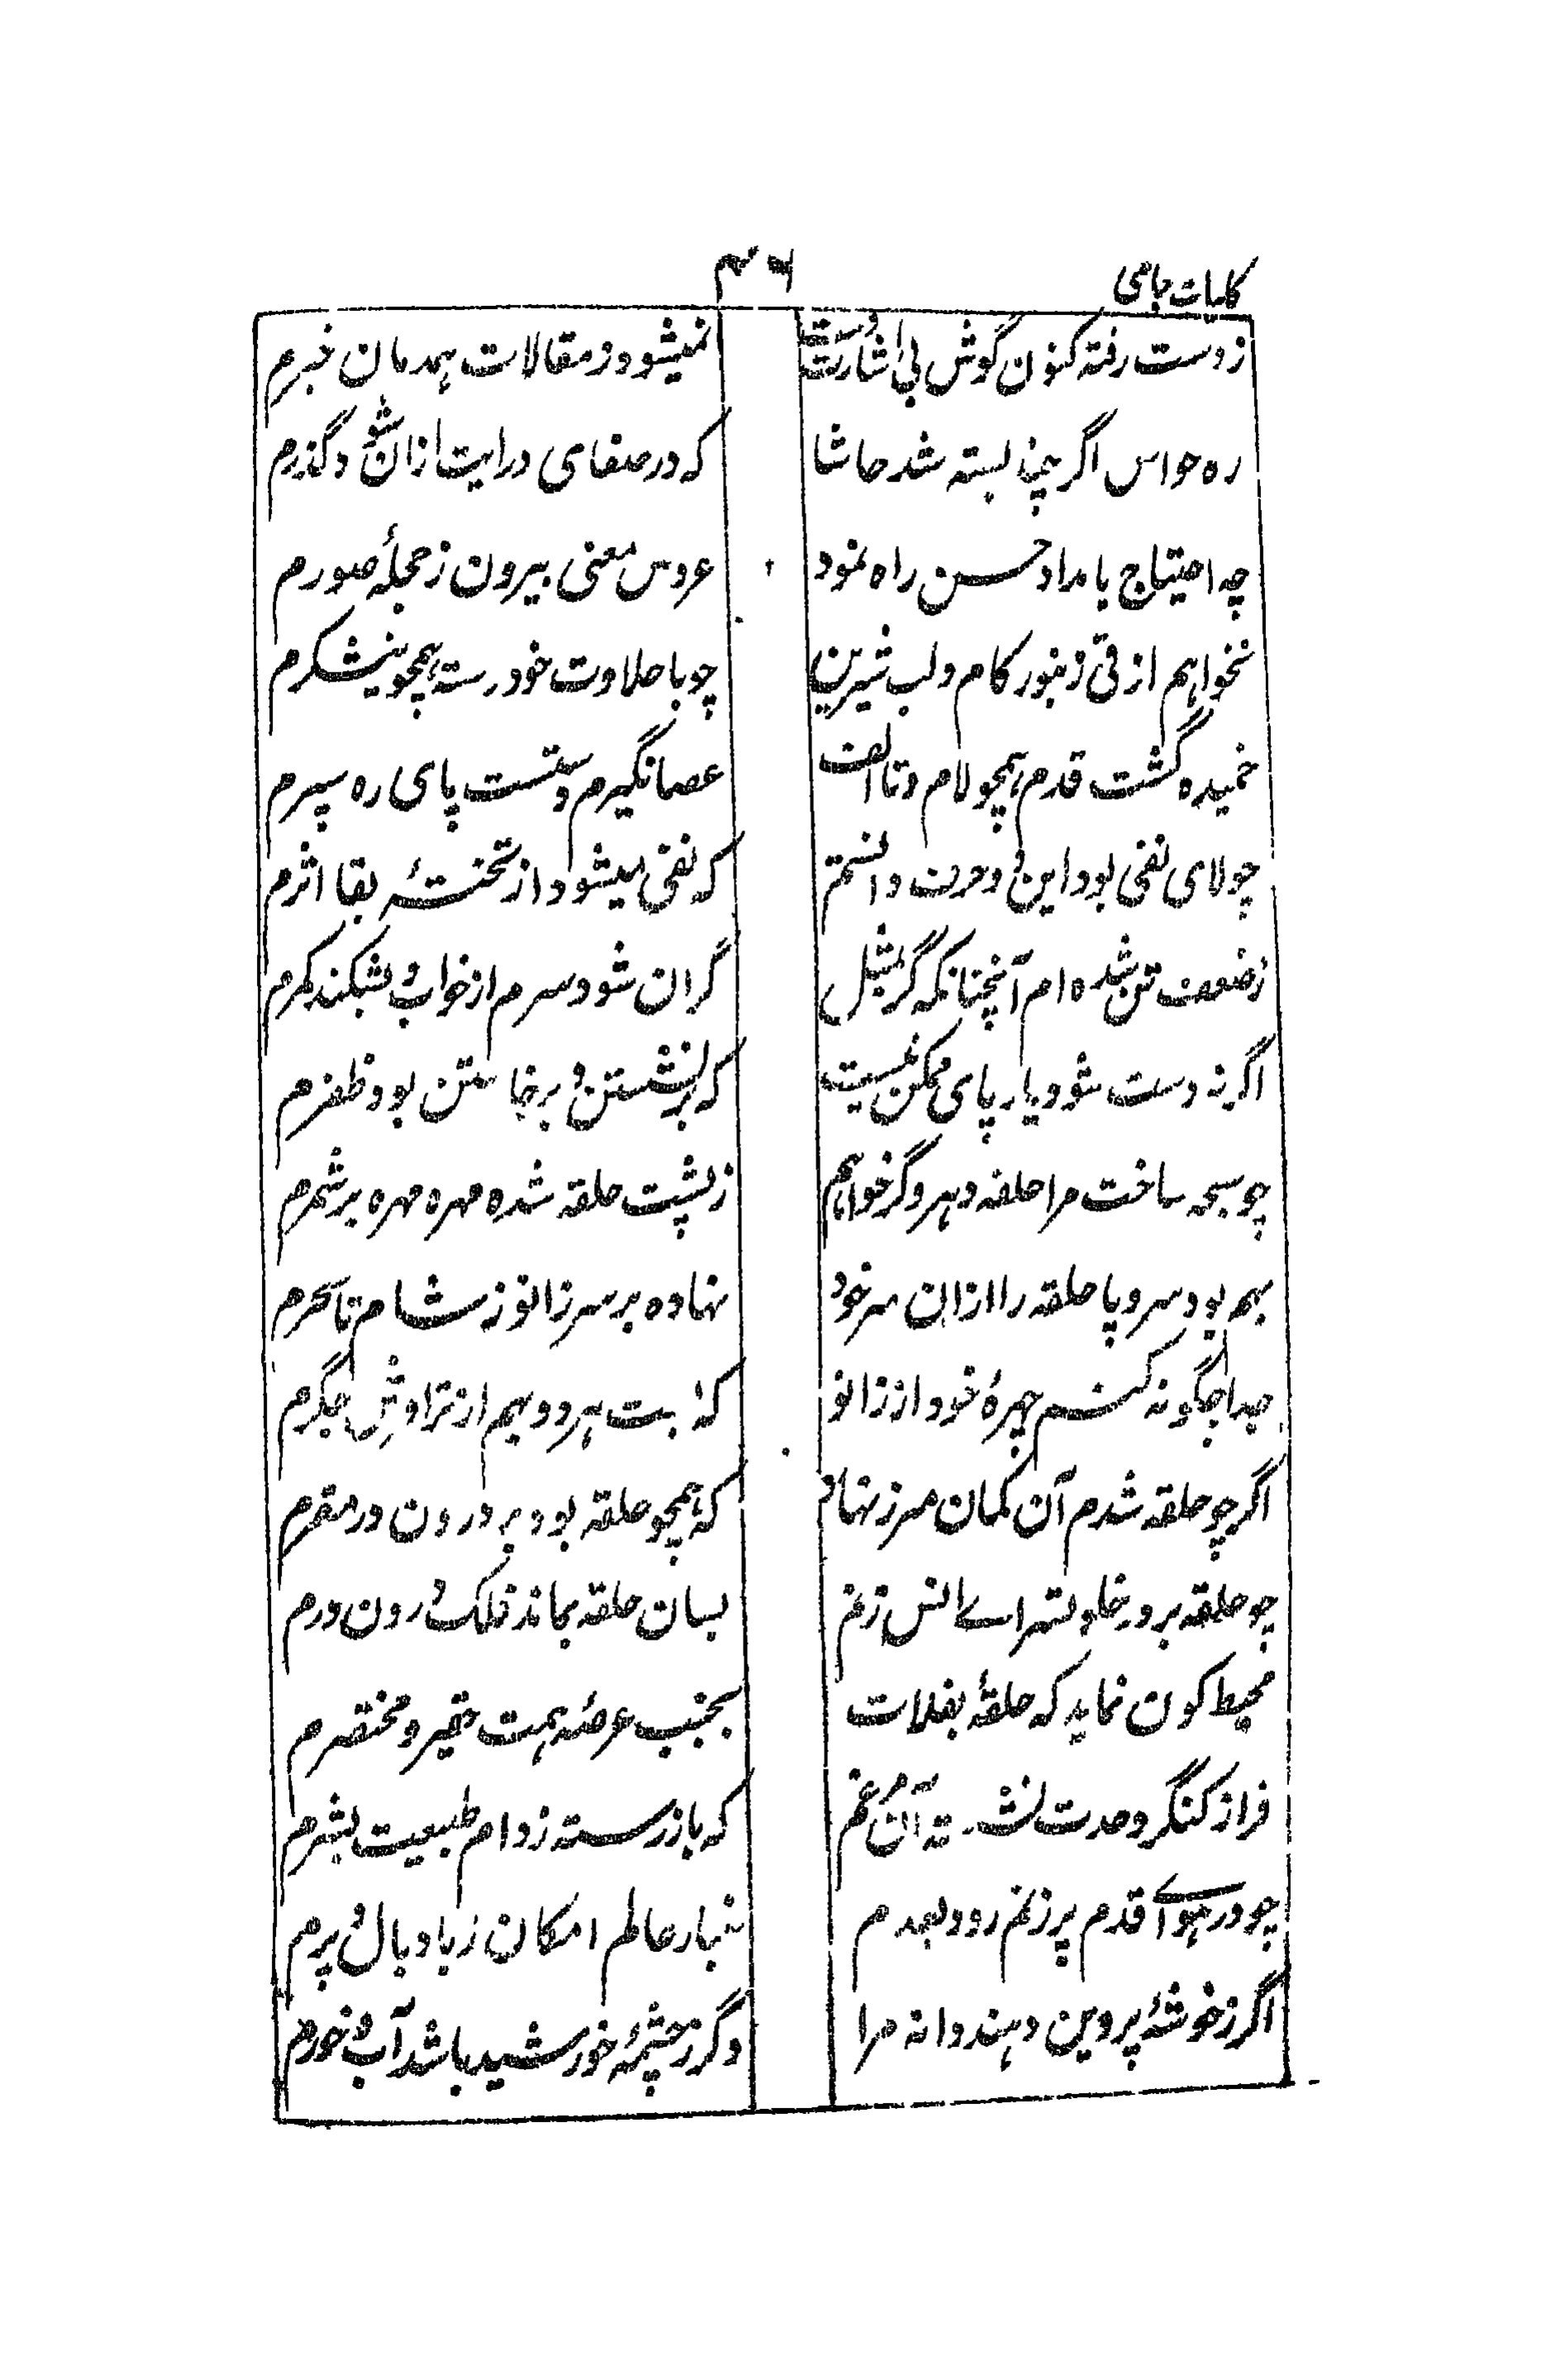 کلیات جامی
۴۶
ز دست رفته کنون گوش بی اشارت دست نمیشود ز مقالات همدمان خبرم
ره حواس اگر چند بسته شد حاشا که در صفای درایت ازان شود گذرم
چه احتیاج بامداد حسن راه نمود عروس معنی بیرون ز حجلهٔ صورم
نخواهم از قی زنبور کام و لب شیرین چو با حلاوت خود رسته همچو نیشکرم
خمیده گشت قدم همچو لام و تا الف عصا نگیرم و دستست پای ره سپرم
چو لای نفی بود این دو حرف دانستم که نفی میشود از تختهٔ بقا اثرم
ز ضعف تن شده ام آنچنانکه گر بمثل گران شود سرم از خواب بشکند کمرم
اگر نه دست شود یار پای ممکن نیست که بر نشستن و برخاستن بود ظفرم
چو سبحه ساخت مرا حلقه دهر و گر خواهم ز پشت حلقه شده مهره مهره برشمرم
بهم بود سر و پا حلقه را ازان سر خود نهاده بر سر زانو ز شام تا سحرم
جدا چگونه کنم چهرهٔ خود از زانو که بست هر دو بهم از تراوش جگرم
اگر چو حلقه شدم آن کمان مبر ز نهاد که همچو حلقه بود بر درون در مقرم
چو حلقه بر در خلوتسرای انس زنم بسان حلقه بماند فلک برون درم
محیط کون نماید که حلقهٔ بفلات بجنب عرصهٔ همت حقیر و مختصرم
فراز کنگر وحدت نشسته آن مرغم که باز رسته ز دام طبیعت بشرم
چو در هوای قدم پر زنم رود بعدم غبار عالم امکان ز باد بال و پرم
اگر ز خوشهٔ پروین دهند دانه مرا وگر ز چشمهٔ خورشید باشد آب و خورم